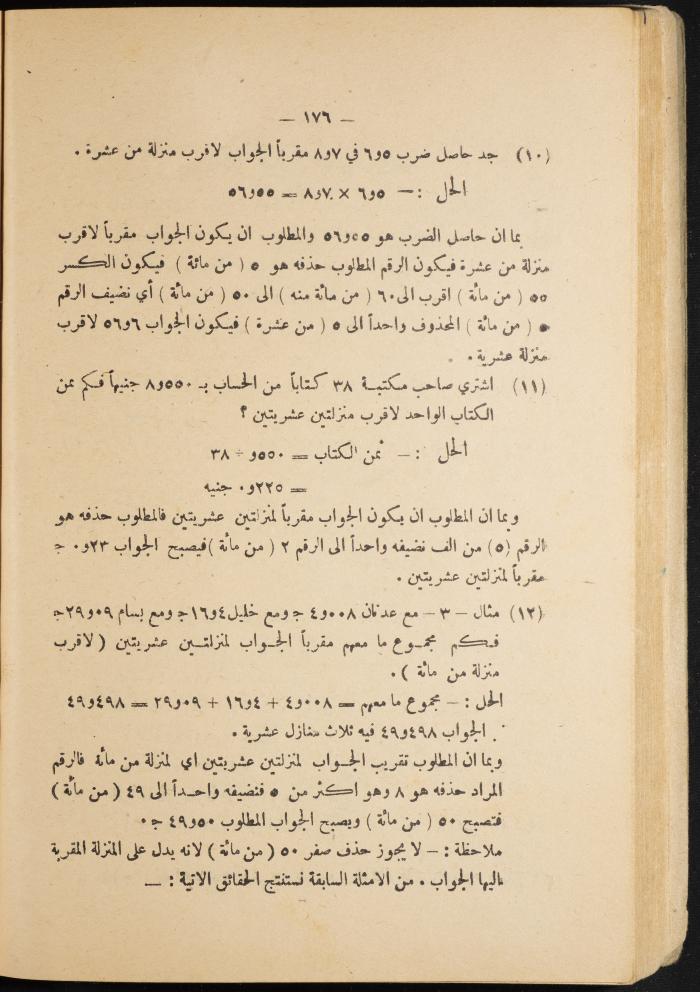 — ١٧٦ —
(١٠) جد حاصل ضرب ٦و٥ في ٨و٧ مقرباً الجواب لاقرب منزلة من عشرة .
الحل : — ٦و٥ × ٨و٧ = ٥٦و٥٥
بما ان حاصل الضرب هو ٥٦و٥٥ والمطلوب ان يكون الجواب مقرباً لاقرب
منزلة من عشرة فيكون الرقم المطلوب حذفه هو ٥ ( من مائة ) فيكون الكسر
٥٥ ( من مائة ) اقرب الى ٦٠ ( من مائة منه ) الى ٥٠ ( من مائة ) أي نضيف الرقم
٥ ( من مائة ) المحذوف واحداً الى ٥ ( من عشرة ) فيكون الجواب ٥٦و٦ لاقرب
منزلة عشرية .
(١١) اشتري صاحب مكتبة ٣٨ كتاباً من الحساب بـ ٨و٥٥٠ جنيهاً فكم ثمن
الكتاب الواحد لاقرب منزلتين عشريتين ؟
الحل : — ثمن الكتاب = و٥٥٠ ÷ ٣٨
= ٠و٢٢٥ جنيه
وبما ان المطلوب ان يكون الجواب مقرباً لمنزلتين عشريتين فالمطلوب حذفه هو
الرقم (٥) من الف نضيفه واحداً الى الرقم ٢ ( من مائة ) فيصبح الجواب ٠و٢٣ ج
مقرباً لمنزلتين عشريتين .
(١٢) مثال — ٣ — مع عدنان ٤و٠٠٨ ج ومع خليل ١٦و٤ ج ومع بسام ٢٩و٠٩ ج
فكم مجموع ما معهم مقرباً الجواب لمنزلتين عشريتين ( لاقرب
منزلة من مائة ) .
الحل : — مجموع ما معهم = ٤و٠٠٨ + ١٦و٤ + ٢٩و٠٩ = ٤٩و٤٩٨
الجواب ٤٩و٤٩٨ فيه ثلاث منازل عشرية .
وبما ان المطلوب تقريب الجواب لمنزلتين عشريتين اي لمنزلة من مائة فالرقم
المراد حذفه هو ٨ وهو اكثر من ٥ فنضيفه واحداً الى ٤٩ ( من مائة )
فتصبح ٥٠ ( من مائة ) ويصبح الجواب المطلوب ٤٩و٥٠ ج .
ملاحظة : — لا يجوز حذف صفر ٥٠ ( من مائة ) لانه يدل على المنزلة المقربة
اليها الجواب . من الامثلة السابقة نستنتج الحقائق الاتية : —